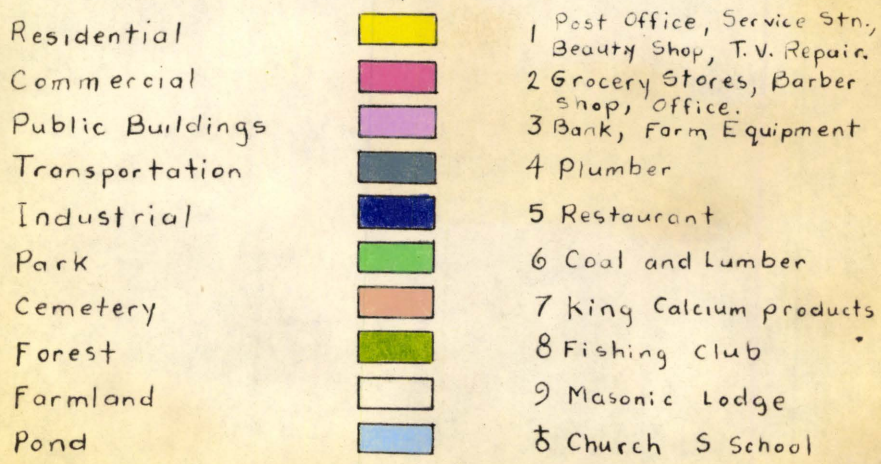 Residential
Commercial
Public Buildings
Transportation
Industrial
Park
Cemetery
Forest
Farmland
Pond
1 Post Office, Service Stn.,
Beauty Shop, T.V. Repair.
2 Grocery Stores, Barber
Shop, Office.
3 Bank, Farm Equipment
4 Plumber
5 Restaurant
6 Coal and Lumber
7 King Calcium products
8 Fishing Club
9 Masonic Lodge
♁ Church S School